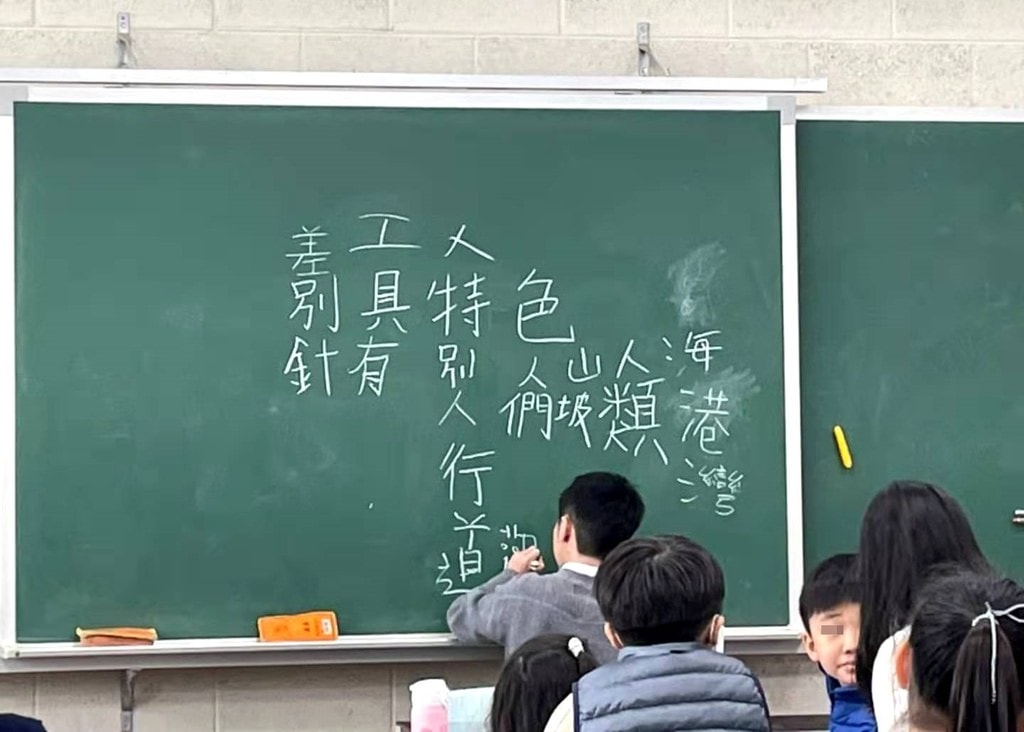 海港灣
人類
山坡
色人們
人特別人行道
工具有
差別針